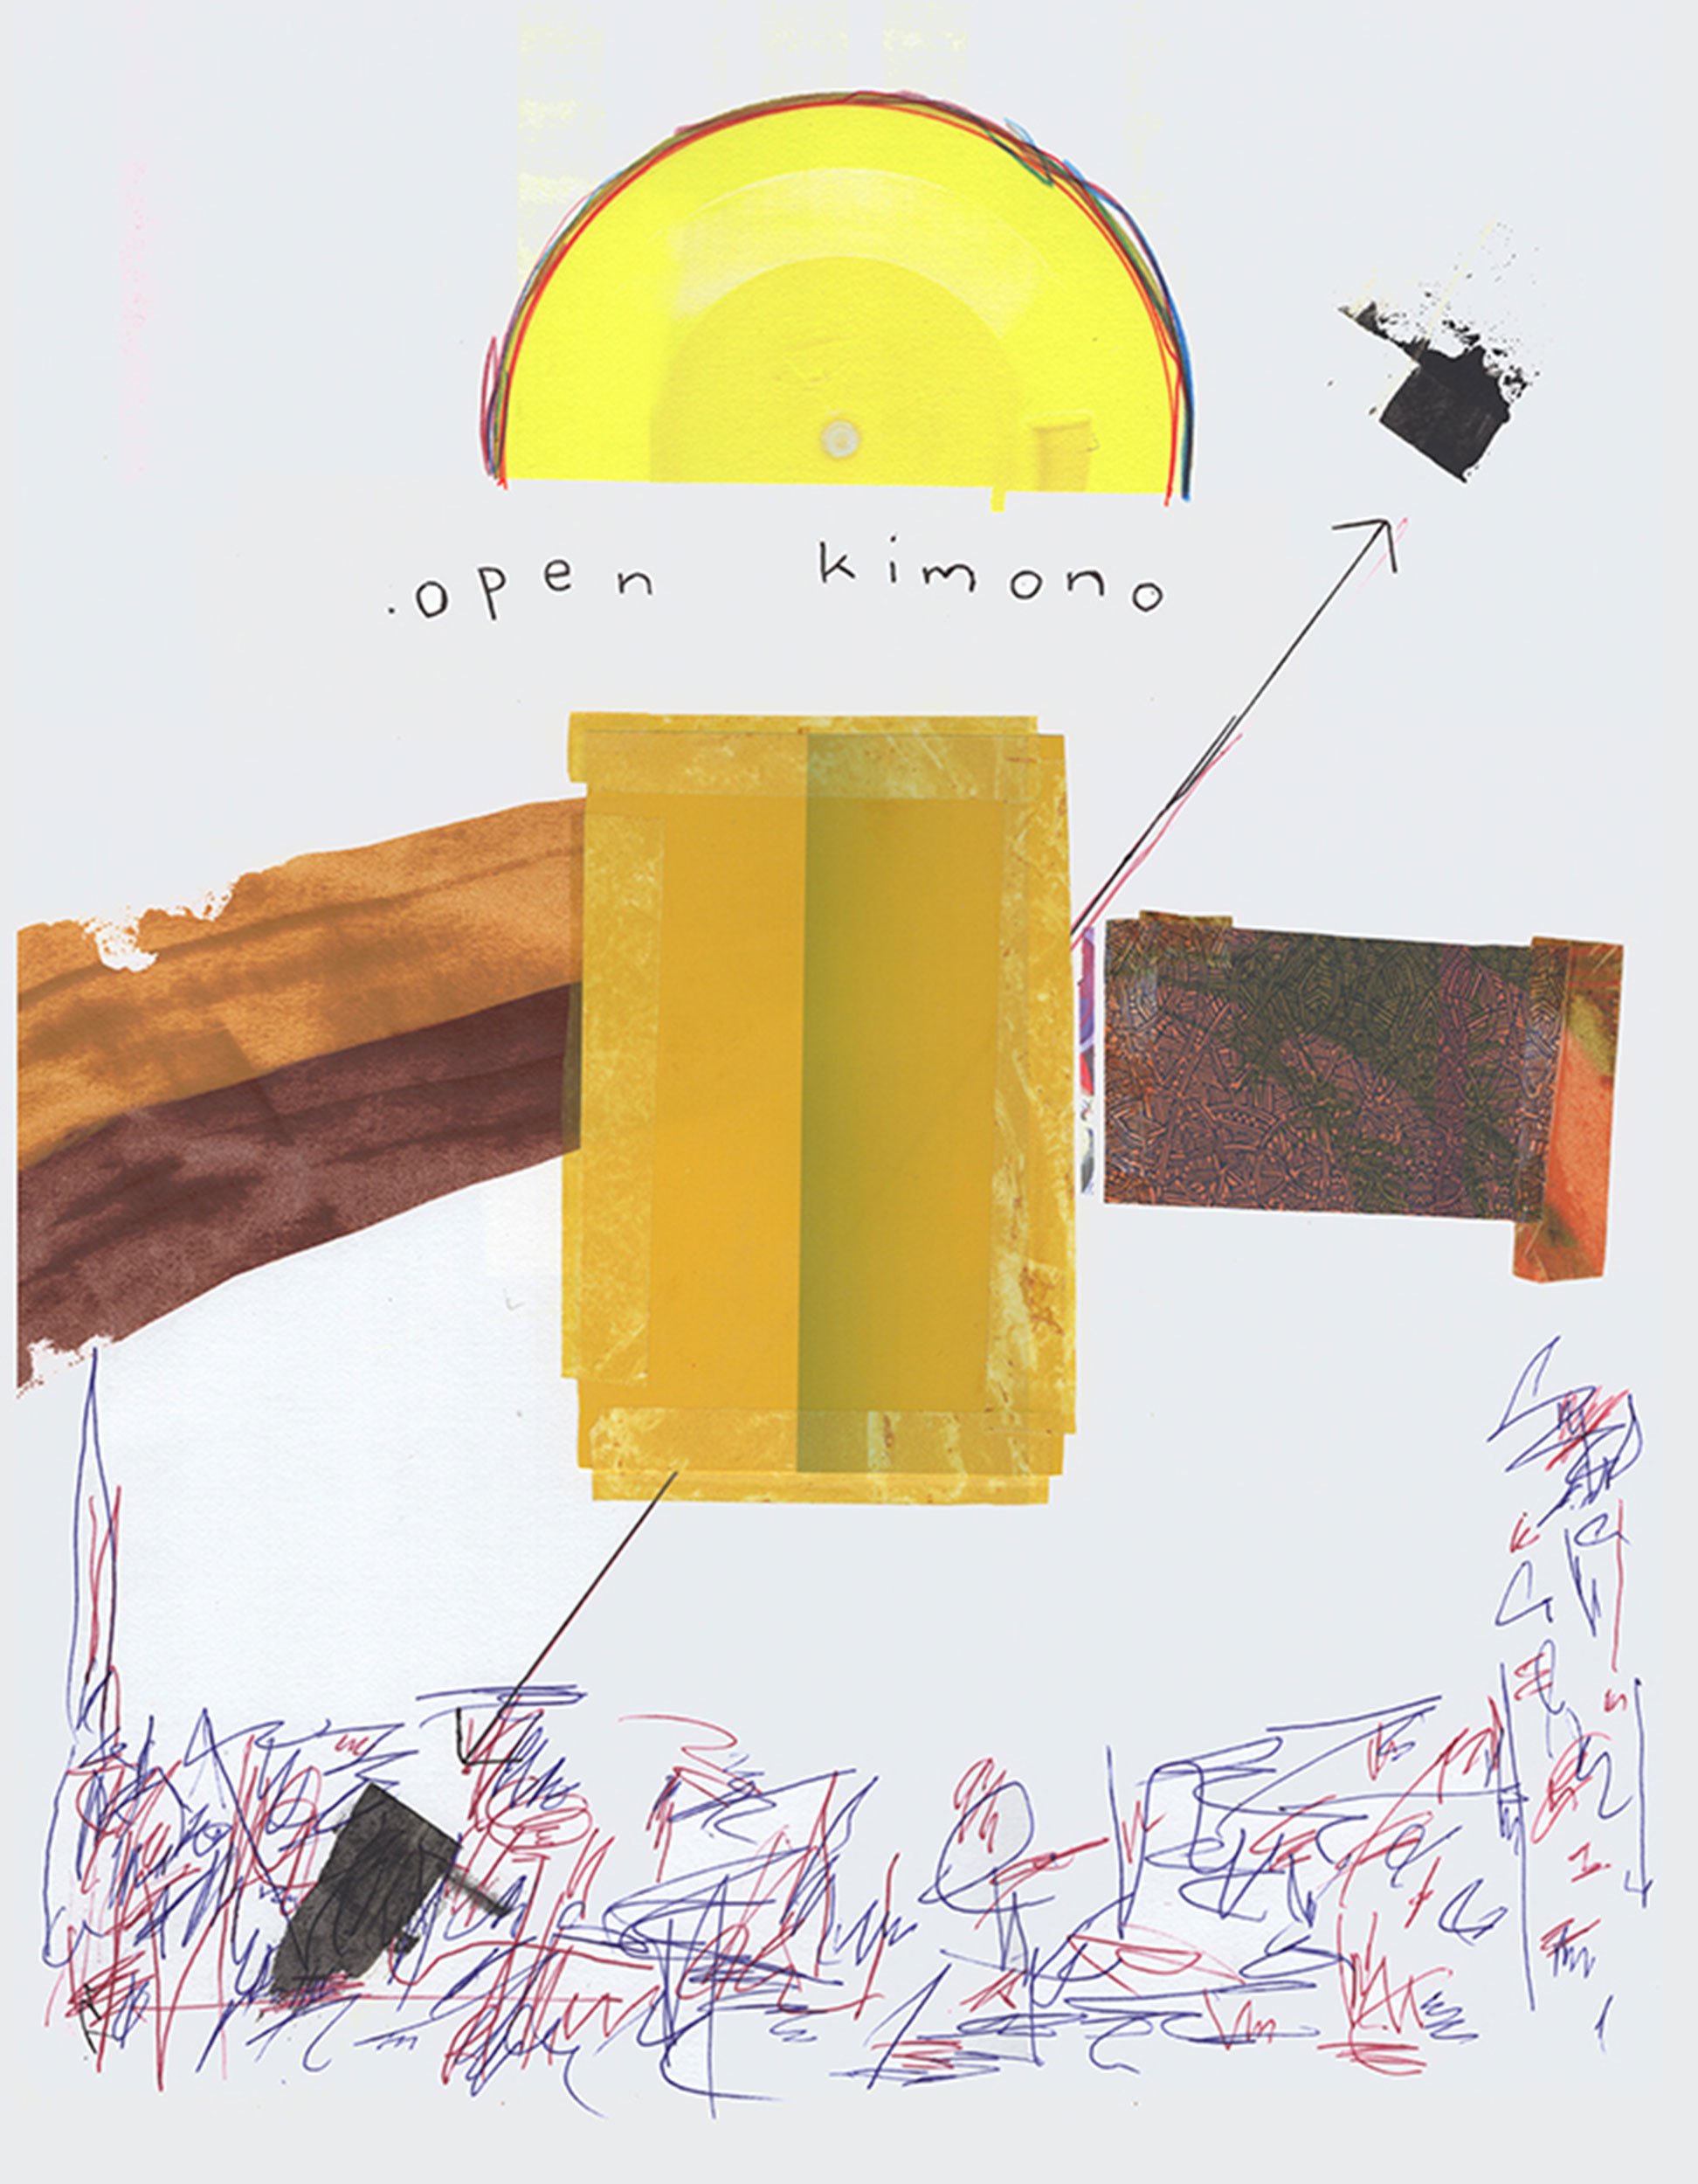 .open kimono